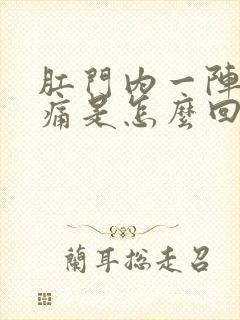 肛門内一陣
痛是怎麼回
蘭耳總走召